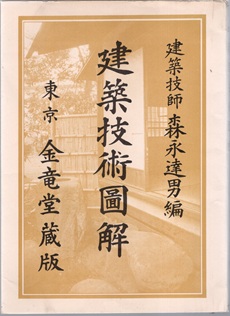 建築技師 森永達男編
建築技術圖解
東京 金竜堂蔵版